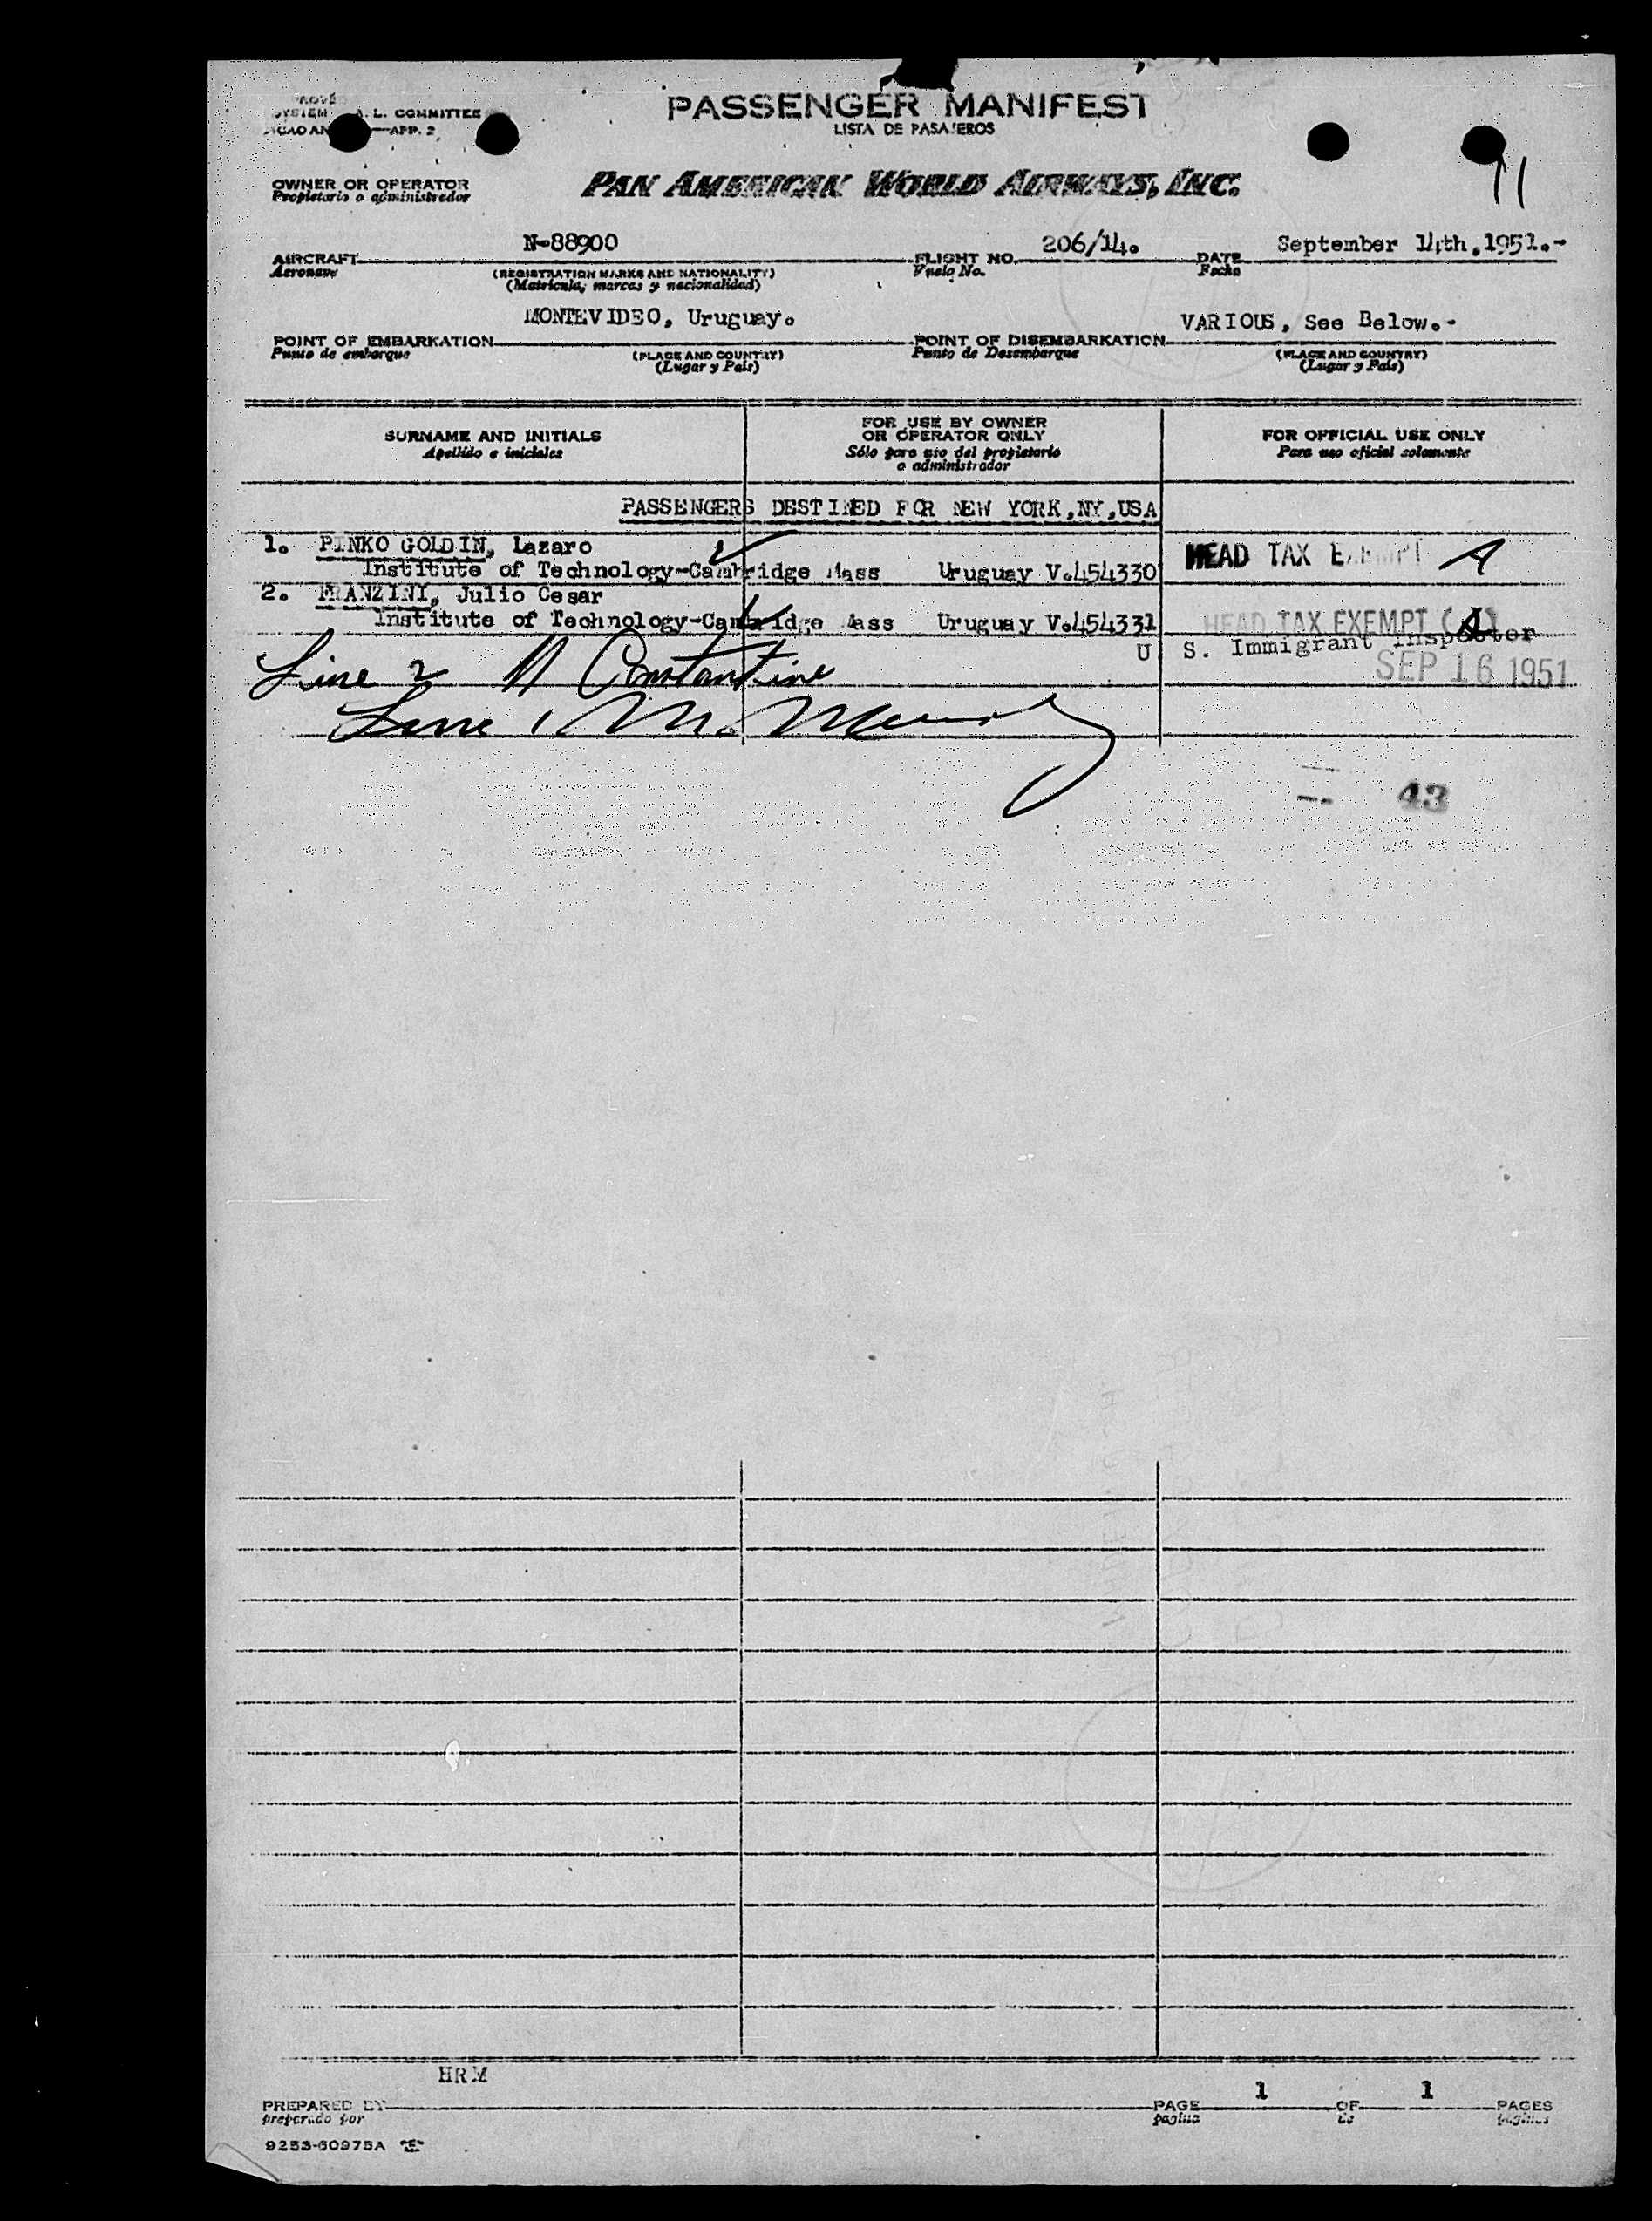 SYSTEM A. L. COMMITTEE
APP. 2
PASSENGER MANIFEST
LISTA DE PASAJEROS
11
OWNER OR OPERATOR
Propietario o administrador
PAN AMERICAN WORLD AIRWAYS, INC.
AIRCRAFT N-88900 FLIGHT NO. 206/14. DATE September 14th,1951.-
Aeronave (REGISTRATION MARKS AND NATIONALITY) Vuelo No. Fecha
(Matrícula, marcas y nacionalidad)
POINT OF EMBARKATION MONTEVIDEO, Uruguay. POINT OF DISEMBARKATION VARIOUS, See Below.-
Punto de embarque (PLACE AND COUNTRY) Punto de Desembarque (PLACE AND COUNTRY)
(Lugar y País) (Lugar y País)
SURNAME AND INITIALS
Apellido e iniciales
FOR USE BY OWNER
OR OPERATOR ONLY
Sólo para uso del propietario
o administrador
FOR OFFICIAL USE ONLY
Para uso oficial solamente
PASSENGERS DESTINED FOR NEW YORK,NY,USA
1. PINKO GOLDIN, Lazaro
Institute of Technology-Cambridge Mass Uruguay V.454330 HEAD TAX EXEMPT A
2. FRANZINI, Julio Cesar
Institute of Technology-Cambridge Mass Uruguay V.454331 HEAD TAX EXEMPT
U S. Immigrant Inspector
SEP 16 1951
Line 2 Constantine
Line 1 M.
43
HRM
PREPARED BY PAGE 1 OF 1 PAGES
preparado por pagina de paginas
9253-60975A